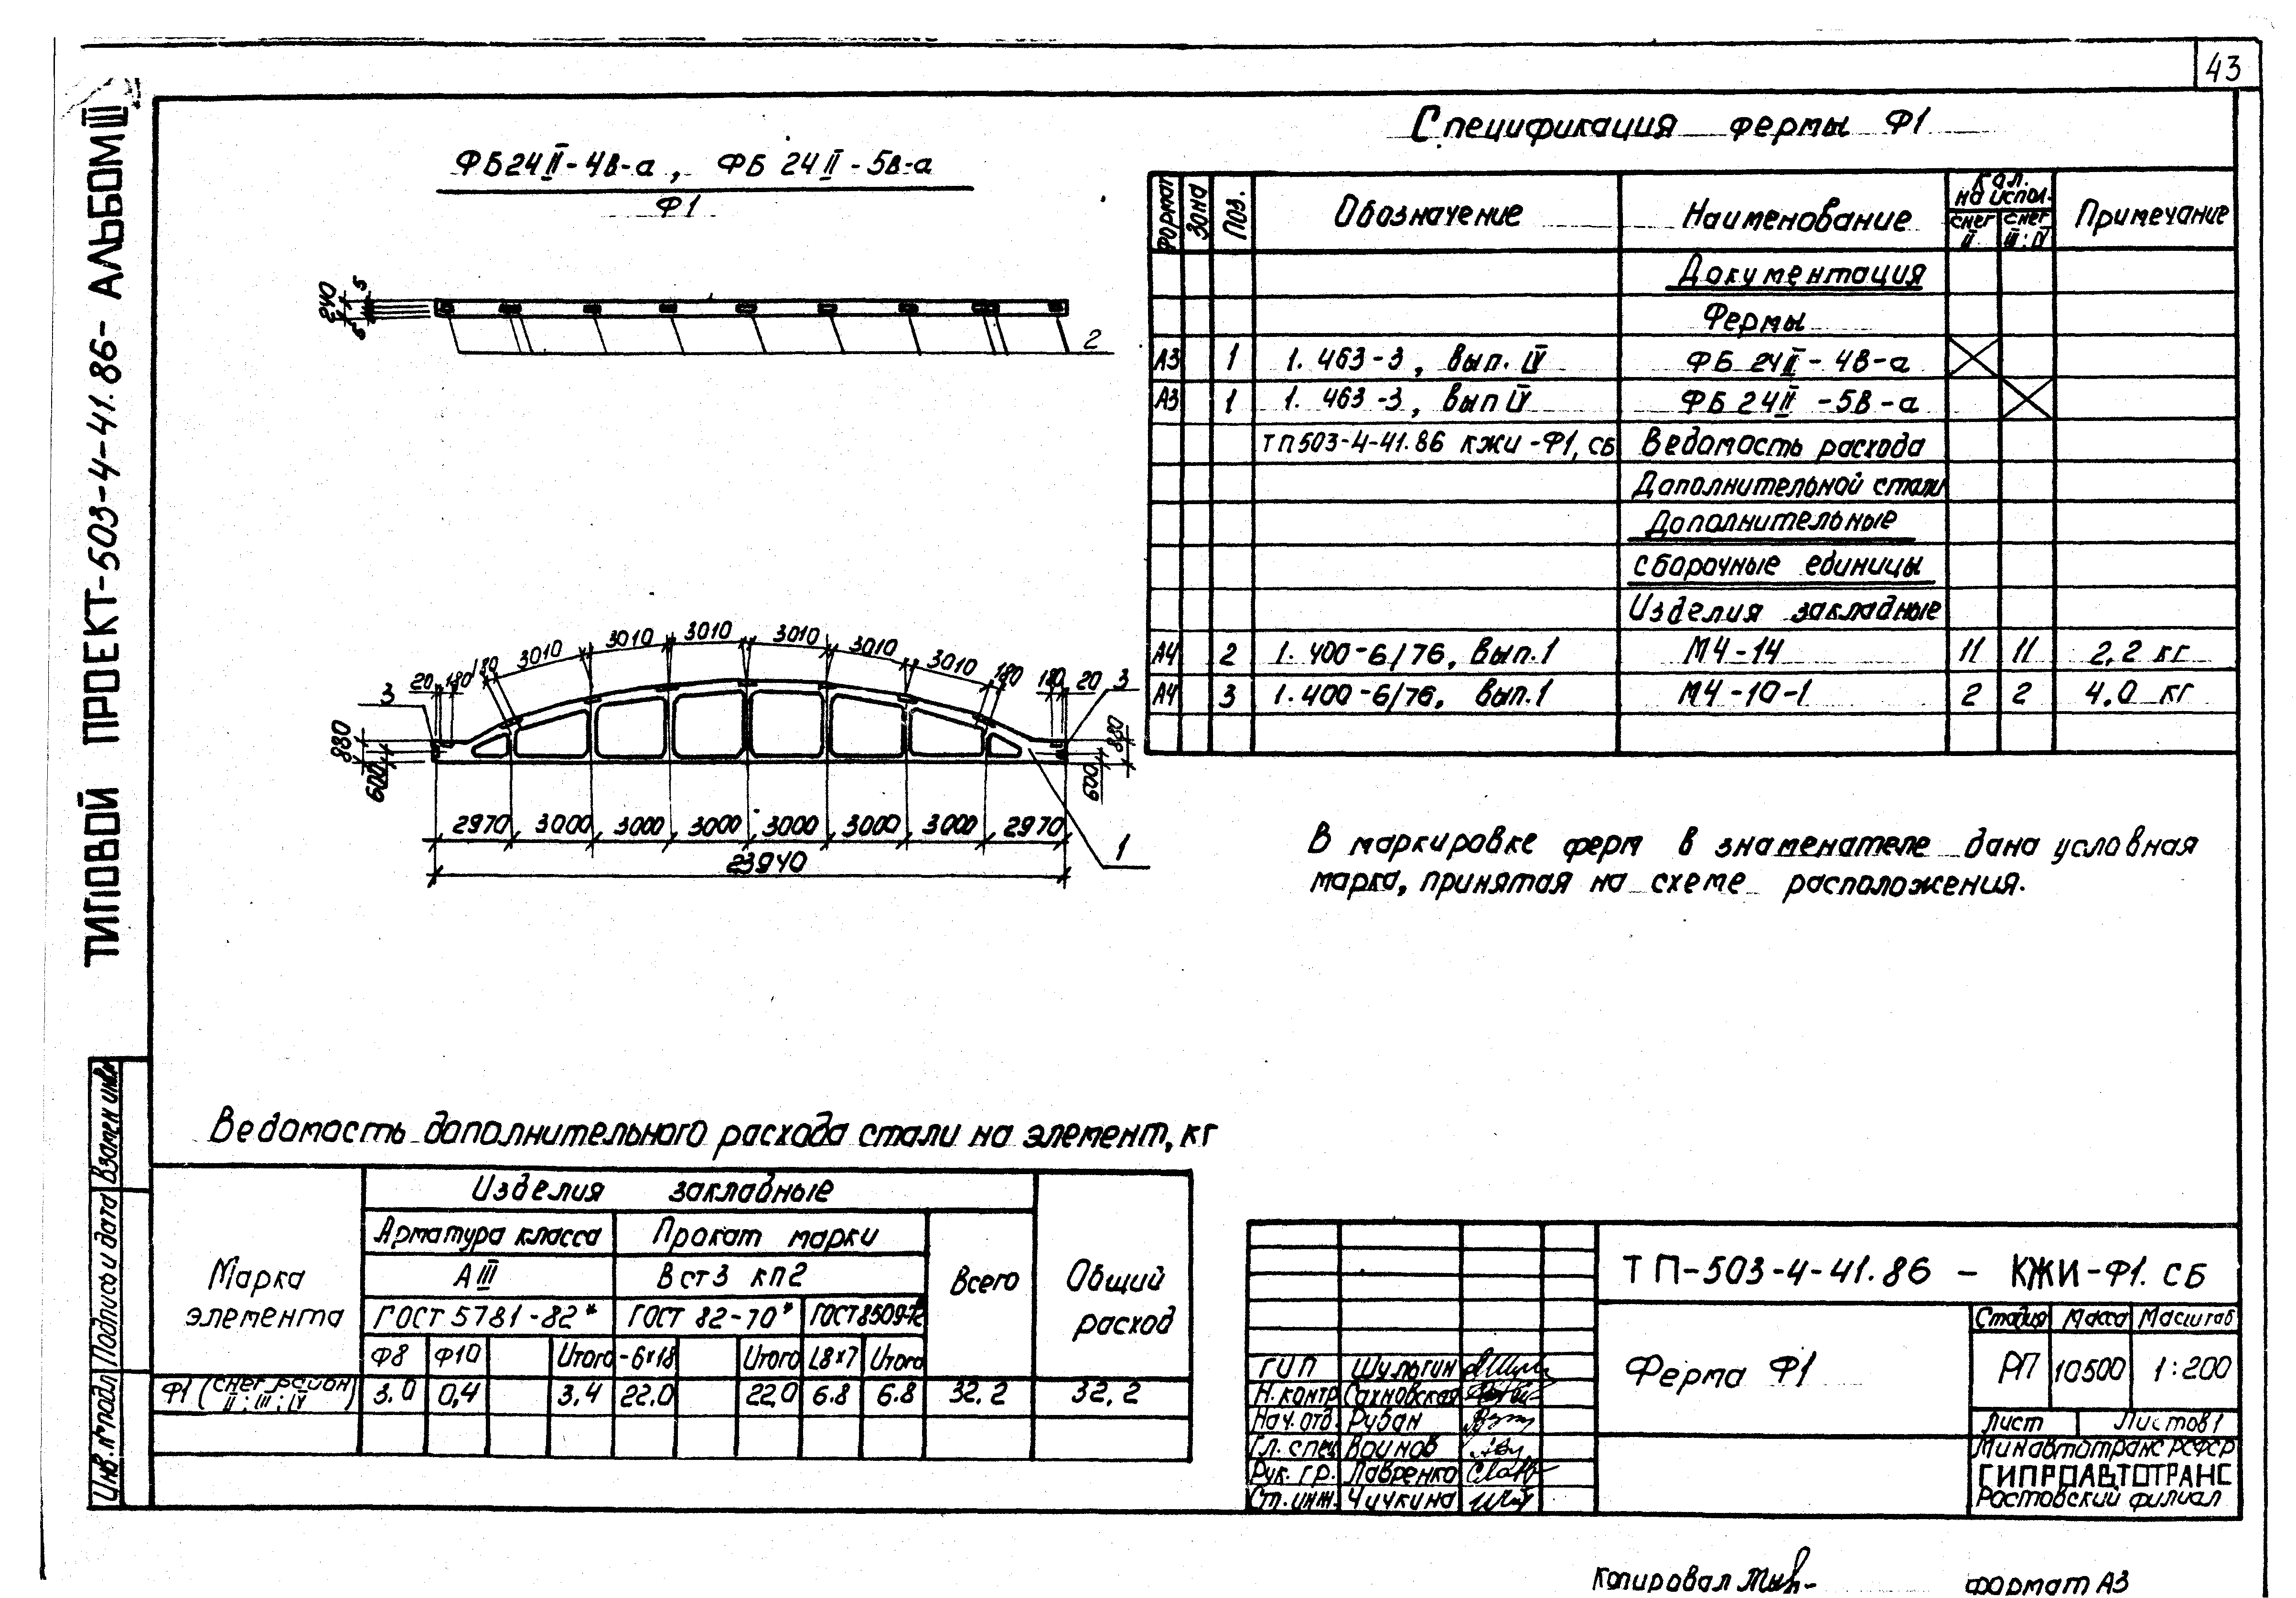 43
ТИПОВОЙ ПРОЕКТ-503-4-41.86- АЛЬБОМ III
ФБ24II-4В-а, ФБ 24II-5В-а
Ф1
240 5
5
2
Спецификация фермы Ф1
Формат Зона Поз. Обозначение Наименование Кол. на испол. Примечание
снег II снег III; IV
Документация
Фермы
А3 1 1.463-3, вып. IV ФБ 24II-4В-а
А3 1 1.463-3, вып IV ФБ 24II-5В-а
ТП503-4-41.86 КЖИ-Ф1, СБ Ведомость расхода
Дополнительной стали
Дополнительные
сборочные единицы
Изделия закладные
А4 2 1.400-6/76, Вып.1 М4-14 11 11 2,2 кг
А4 3 1.400-6/76, Вып.1 М4-10-1 2 2 4.0 кг
3 20 180 180 3010 3010 3010 3010 3010 3010 180 180 20 3
880 600 600 880
2970 3000 3000 3000 3000 3000 3000 2970
23940
1
В маркировке ферм в знаменателе дана условная
марка, принятая на схеме расположения.
Ведомость дополнительного расхода стали на элемент, кг
Марка элемента Изделия закладные Общий расход
Арматура класса Прокат марки Всего
А III В ст3 кп2
ГОСТ 5781-82* ГОСТ 82-70* ГОСТ 8509-72
Ф8 Ф10 Итого -6х18 Итого L8х7 Итого
Ф1 (снег район II; III; IV) 3.0 0,4 3,4 22.0 22,0 6.8 6.8 32.2 32,2
ТП-503-4-41.86 - КЖИ-Ф1.СБ
Ферма Ф1
Стадия Масса Масштаб
РП 10500 1:200
Лист Листов 1
Минавтотранс РСФСР
ГИПРОАВТОТРАНС
Ростовский филиал
ГИП Шульгин
Н.контр Сахновская
Нач. отд. Рубан
Гл. спец Воинов
Рук. гр. Лавренко
Ст. инж. Чичкина
Взамен инв.№
Подпись и дата
Инв.№ подл
Копировал
формат А3